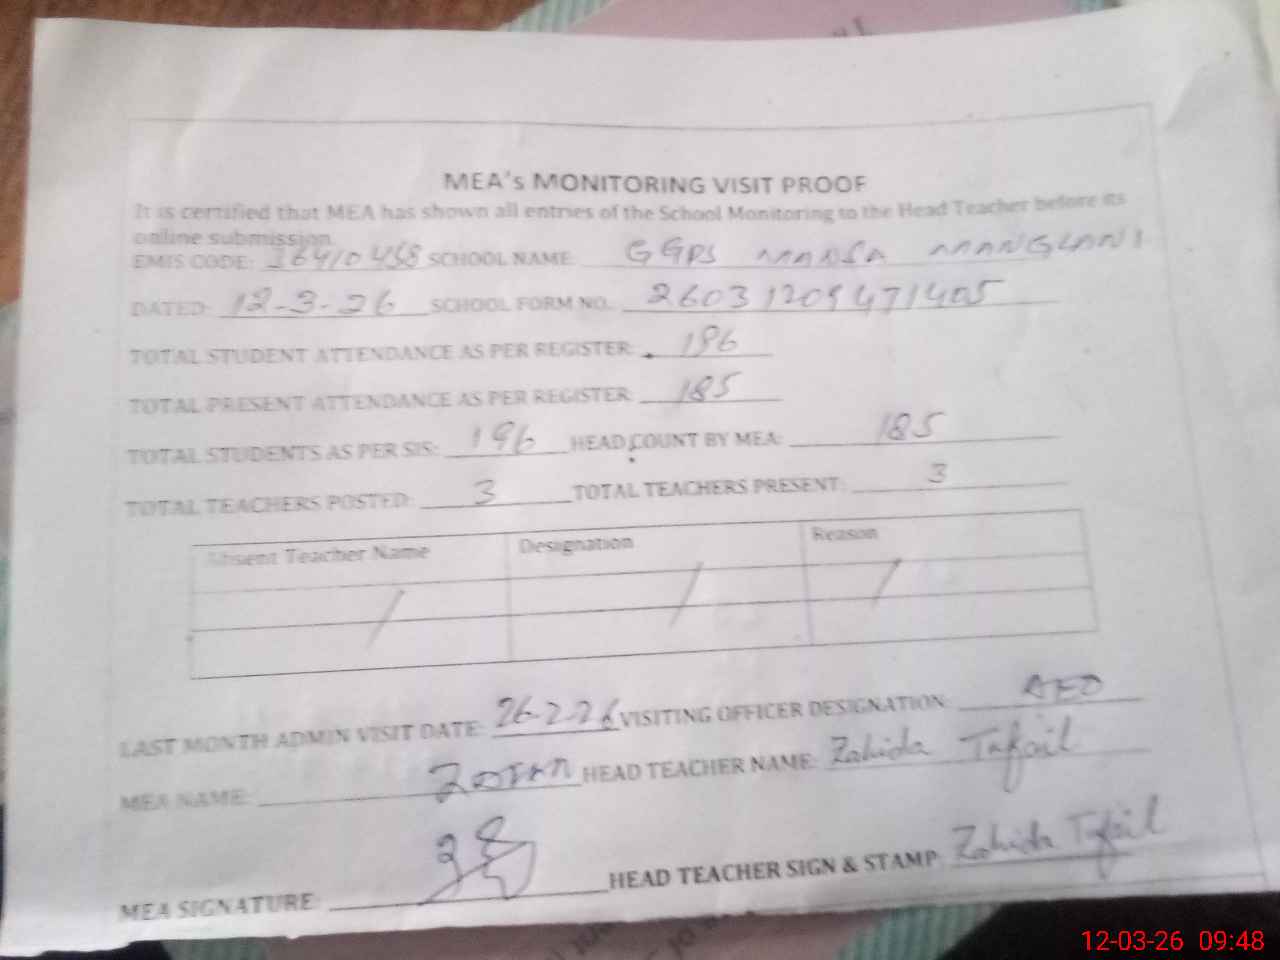 MEA's MONITORING VISIT PROOF
It is certified that MEA has shown all entries of the School Monitoring to the Head Teacher before its
online submission
EMIS CODE: 36410458 SCHOOL NAME: GGPS MANSA MANGLANNI
DATED: 12-3-26 SCHOOL FORM NO. 26031209471405
TOTAL STUDENT ATTENDANCE AS PER REGISTER: 196
TOTAL PRESENT ATTENDANCE AS PER REGISTER: 185
TOTAL STUDENTS AS PER SIS: 196 HEAD COUNT BY MEA: 185
TOTAL TEACHERS POSTED: 3 TOTAL TEACHERS PRESENT: 3
Absent Teacher Name Designation Reason
LAST MONTH ADMIN VISIT DATE: 26-2-26 VISITING OFFICER DESIGNATION: AEO
MEA NAME: HEAD TEACHER NAME: Zahida Tufail
MEA SIGNATURE: HEAD TEACHER SIGN & STAMP: Zahida Tufail
12-03-26 09:48